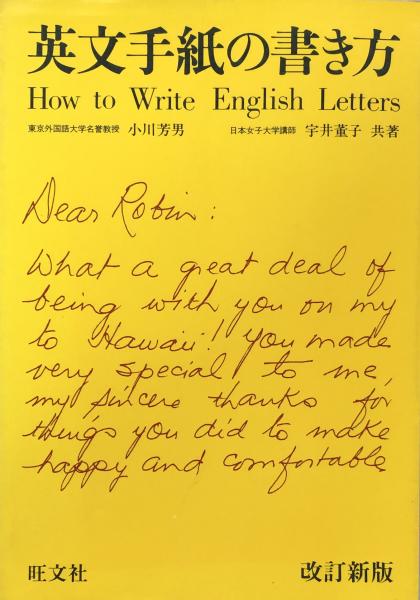 英文手紙の書き方
How to Write English Letters
東京外国語大学名誉教授 小川芳男 日本女子大学講師 宇井董子 共著
Dear Robin:
What a great deal of
being with you on my
to Hawaii! You made
very special to me,
my sincere thanks for
things you did to make
happy and comfortable
旺文社 改訂新版